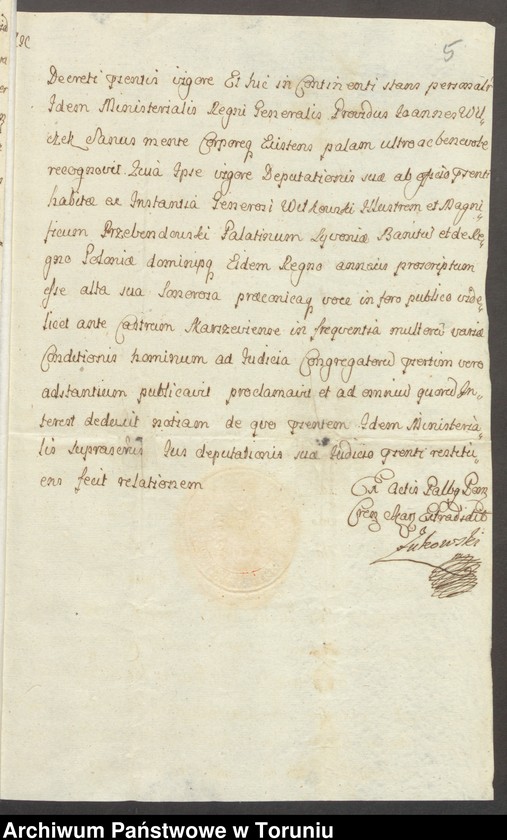 5
Decreti prntis vigore Et hic in Continenti stans personalr
Idem Ministerialis Regni Generalis Providus Joannes Wil„
czek Sanus mente Corporeq Existens palam ultro ac benevole
recognovit. Quia Ipse vigore Deputationis suæ ab officio prnti
habitæ ac Instantiâ Generosi Witkowski Illustrem et Magni„
ficum Przebendowski Palatinum Livoniæ Banitū et de Re„
gno Poloniæ dominijsq Eidem Regno annexis proscriptum
esse alta sua Sonorosa præconicaq voce in foro publico vide„
licet ante Castrum Skarszeviense in frequentia multorū variæ
Conditionis hominum ad Iudicia Congregatorū prtium vero
adstantium publicavit proclamavit et ad omniū quorū In„
terest deduxit notiam de quo prntem Idem Ministeria„
lis suprascrius Jus deputationis suæ Iudicio prnti restitu„
ens fecit relationem
Ex Actis Palbq Pom
Cren Skar Extradidit
Żukowski
Archiwum Państwowe w Toruniu